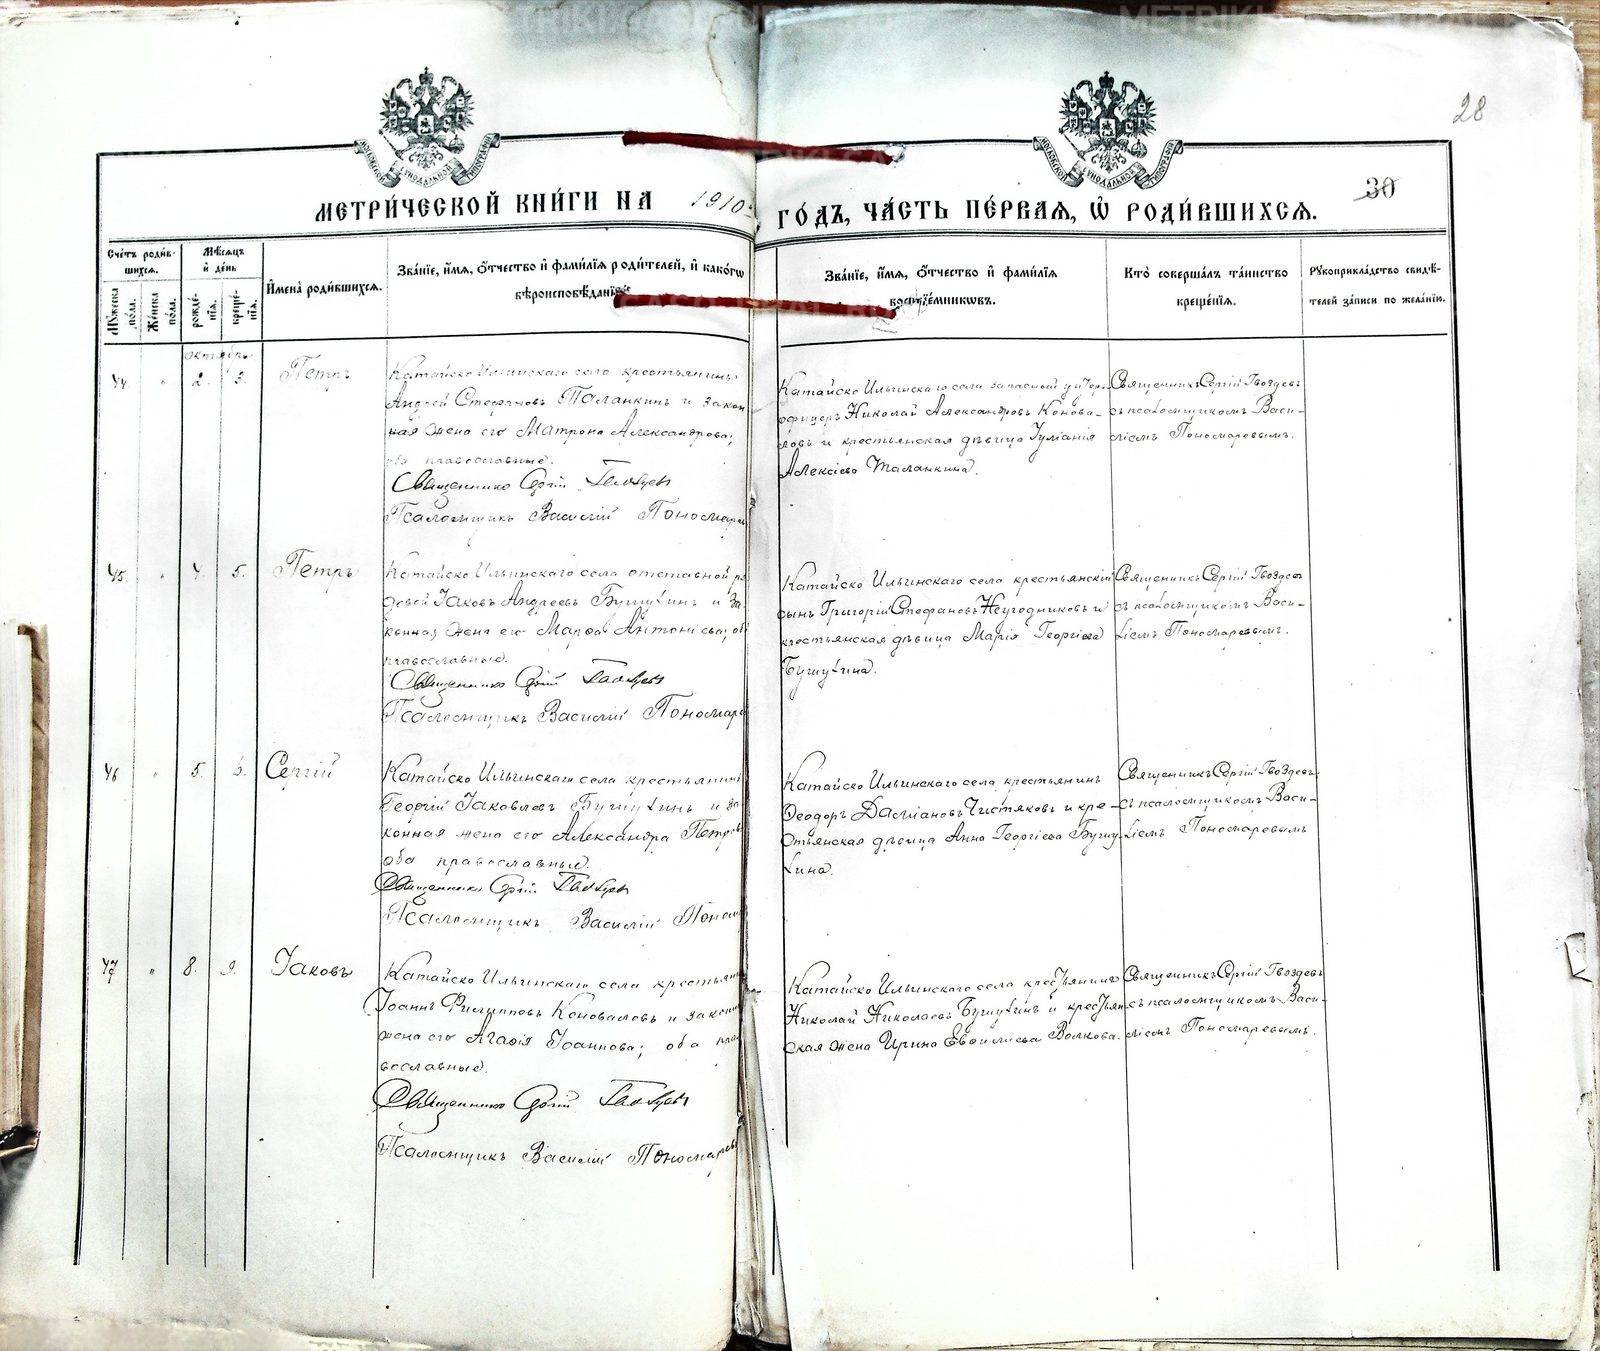 28
30
МЕТРИ́ЧЕСКОЙ КНИ́ГИ НА 1910 ГО́ДЪ, ЧА́СТЬ ПЕ́РВАЯ, Ѡ РОДИ́ВШИХСЯ.
Сче́тъ роди́в-
шихся.
Му́жеска по́ла.
Же́нска по́ла.
Мѣ́сяцъ
и де́нь
рожде́-
нїя.
креще́-
нїя.
И́мена роди́вшихся.
Зва́нїе, и́мя, о́тчество и фами́лїя роди́телей, и како́гѡ
вѣроисповѣ́данїя.
Зва́нїе, и́мя, о́тчество и фами́лїя
воспрїе́мникѡвъ.
Кто̀ соверша́лъ та́инство
креще́нїя.
Рукоприкла́дство свидѣ́-
телей за́писи по жела́нїю.
Октябрь
44 " 2. 3. Петръ
Катайско Ильинскаго села крестьянинъ
Андрей Стефановъ Таланкинъ и закон
ная жена его Матрона Александрова;
оба православные.
Священникъ Сергій Гвоздевъ
Псаломщикъ Василій Пономарев
Катайско Ильинскаго села запасной унтеръ
офицеръ Николай Александровъ Конова-
ловъ и крестьянская дѣвица Іуліанія
Алексіева Таланкина.
Священникъ Сергій Гвоздевъ
съ псаломщикомъ Васи-
ліемъ Пономаревымъ.
45 " 4. 5. Петръ
Катайско Ильинскаго села отставной ря
довой Іаковъ Андреевъ Бушуевъ и за-
конная жена его Марѳа Антоніева; оба
православные.
Священникъ Сергій Гвоздевъ
Псаломщикъ Василій Пономаре
Катайско Ильинскаго села крестьянскій
сынъ Григорій Стефановъ Неугодниковъ и
крестьянская дѣвица Марія Георгіева
Священникъ Сергій Гвоздевъ
съ псаломщикомъ Васи-
ліемъ Пономаревымъ.
46 " 5. 6. Сергій
Катайско Ильинскаго села крестьянинъ
Георгій Іаковлевъ и за
конная жена его Александра Петрова
оба православные.
Священникъ Сергій Гвоздевъ
Псаломщикъ Василій Поном
Катайско Ильинскаго села крестьянинъ
Ѳеодоръ Даміановъ Чистяковъ и кре-
стьянская дѣвица Анна Георгіева
Священникъ Сергій Гвоздевъ
съ псаломщикомъ Васи-
ліемъ Пономаревымъ
47 " 8. 9. Іаковъ
Катайско Ильинскаго села крестьян
Іоаннъ Филипповъ Коноваловъ и законн
жена его Агафія Іоаннова; оба пра
вославные.
Священникъ Сергій Гвоздевъ
Псаломщикъ Василій Пономаревъ
Катайско Ильинскаго села крестьянинъ
Николай Николаевъ и крестьян-
ская жена Ирина Евфиміева Волкова.
Священникъ Сергій Гвоздевъ
съ псаломщикомъ Васи-
ліемъ Пономаревымъ.